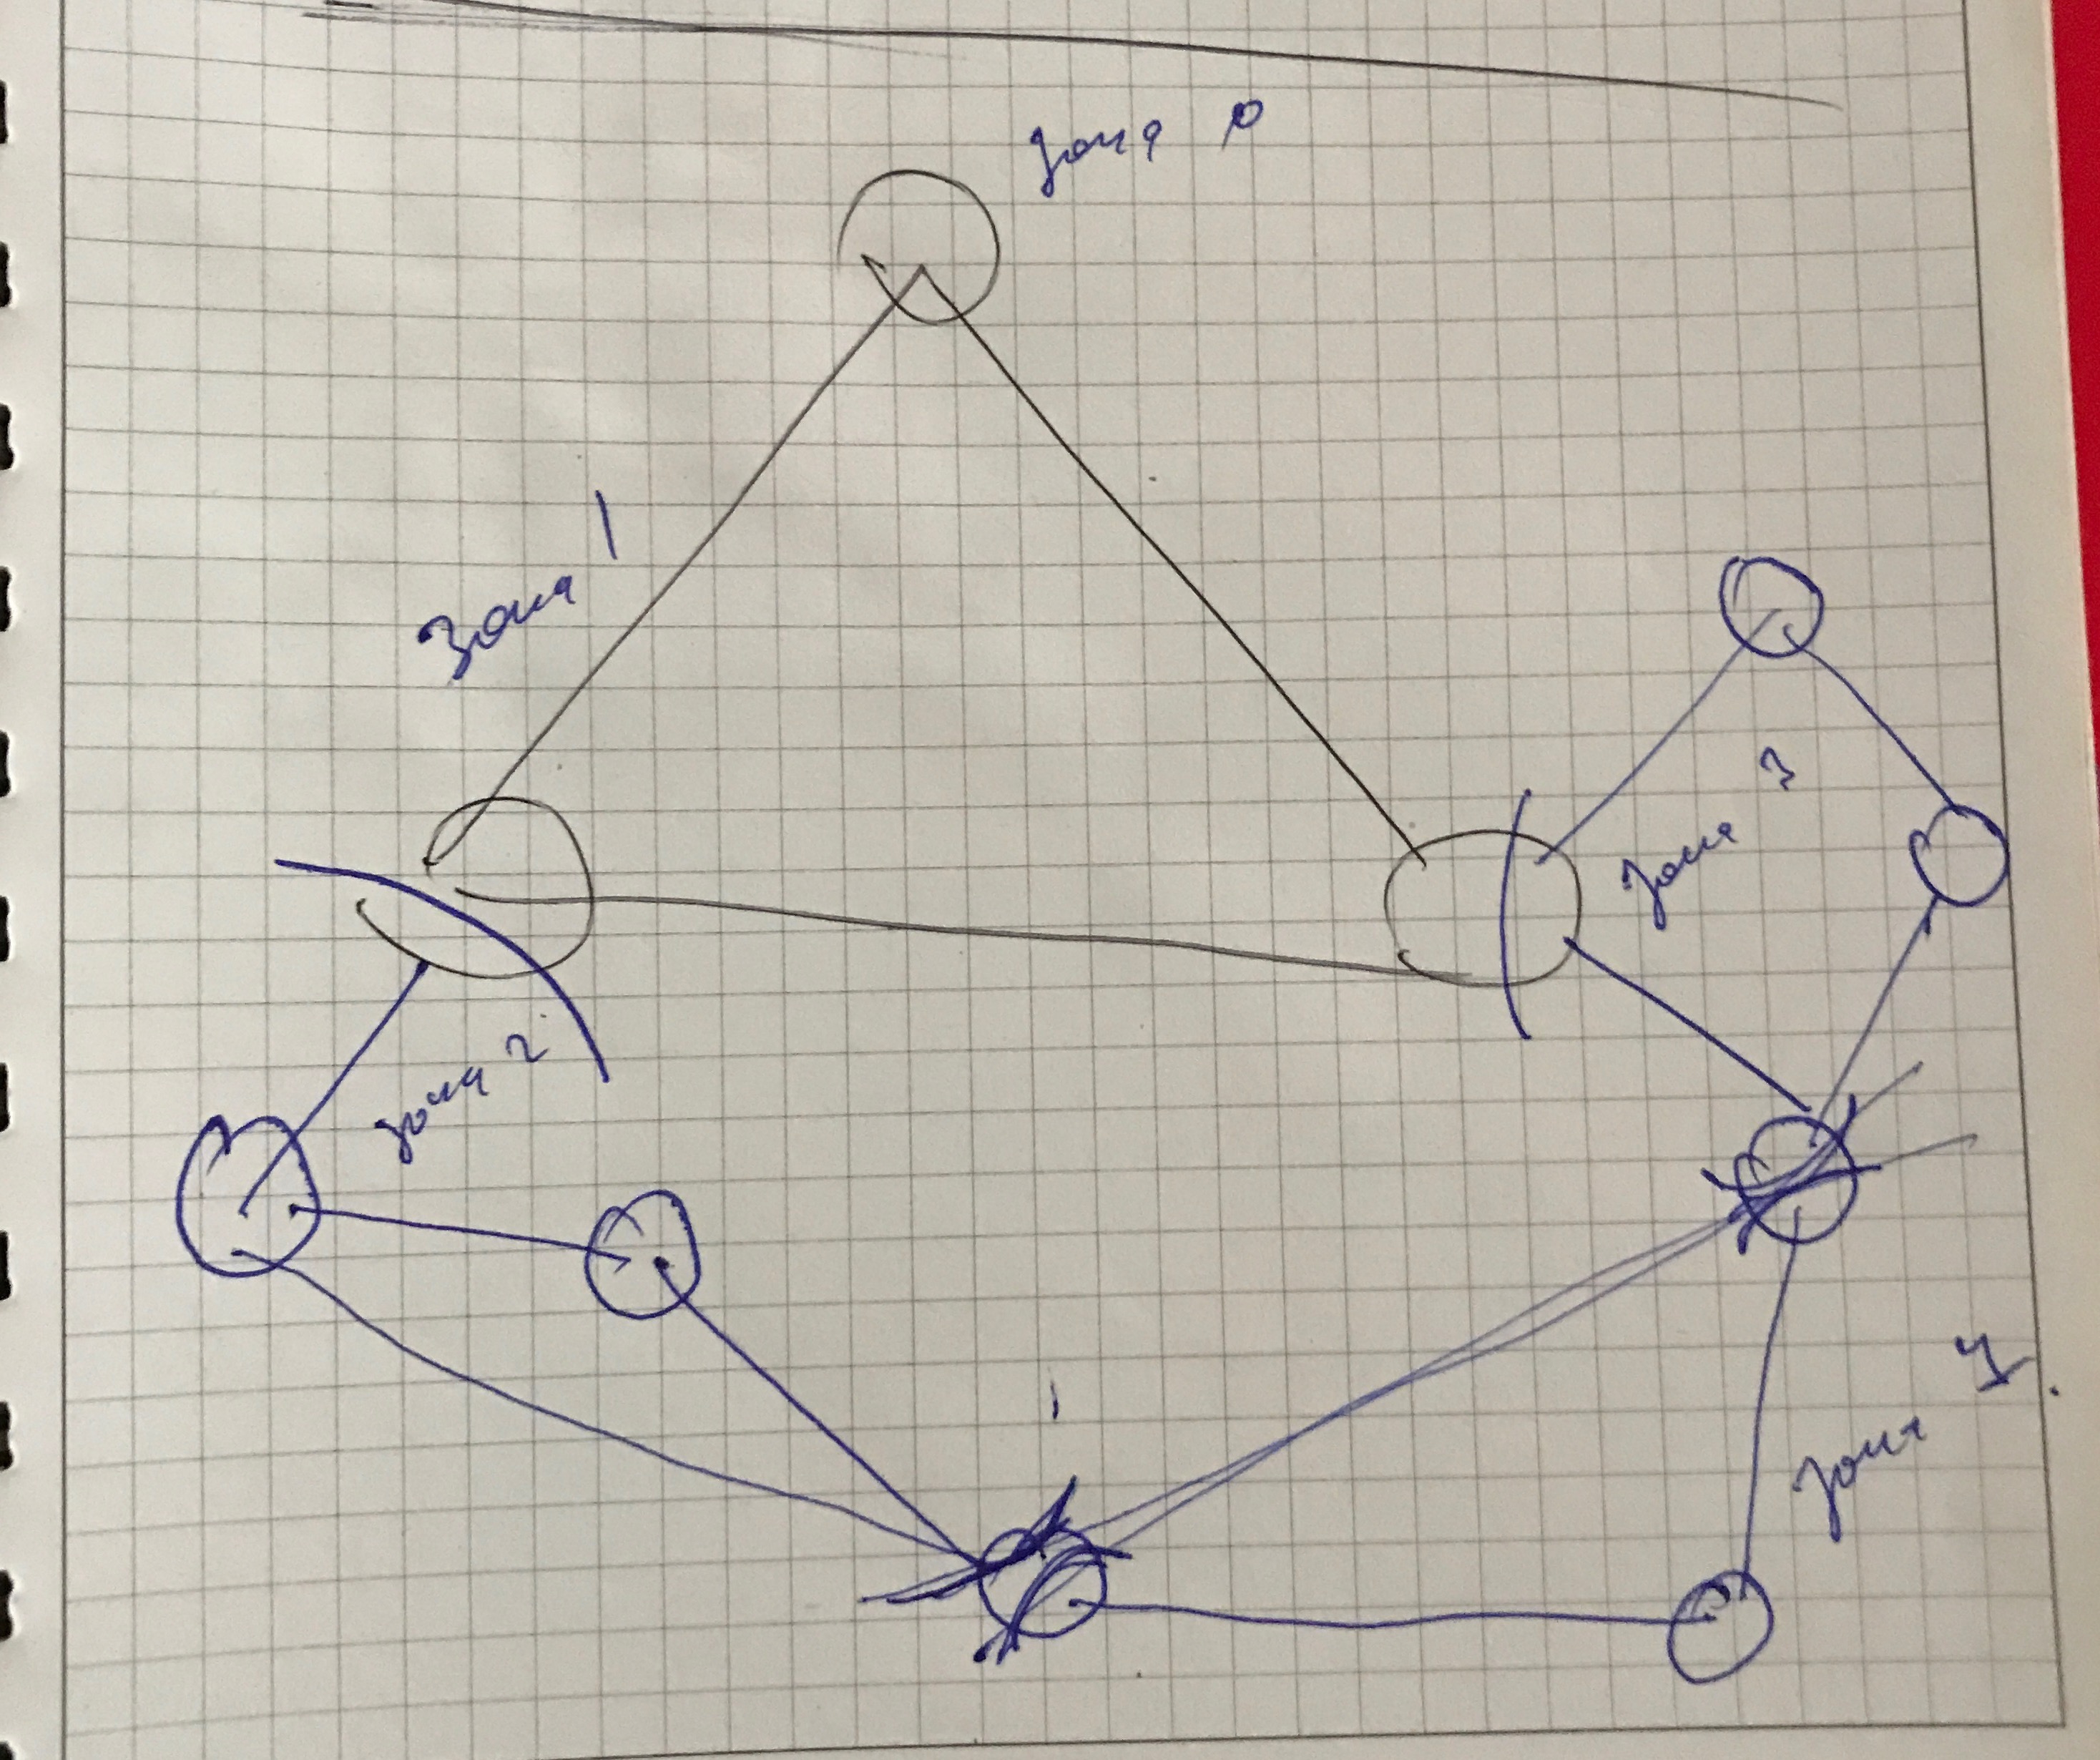 зона 0
Зона 1
зона 3
зона 2
зона 4